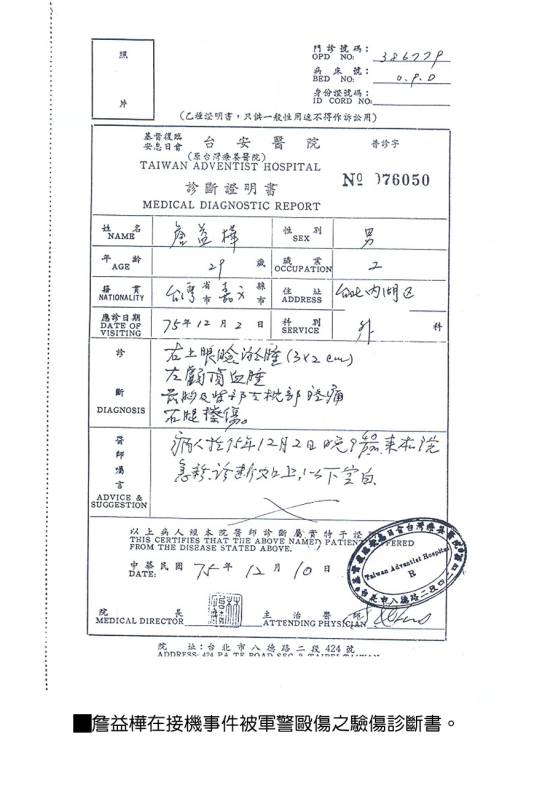 照
片
門診號碼：
OPD NO: 386779
病床號：
BED NO: O.P.D
身份證號碼：
ID CORD NO:
(乙種證明書，只供一般性用途不得作訴訟用)
基督復臨
安息日會 台安醫院 普診字
(原台灣療養醫院)
TAIWAN ADVENTIST HOSPITAL
診斷證明書 No 076050
MEDICAL DIAGNOSTIC REPORT
姓名 NAME 詹益樺 性別 SEX 男
年齡 AGE 29 歲 職業 OCCUPATION 工
籍貫 NATIONALITY 台灣 省市 嘉义 縣市 住址 ADDRESS 台北內湖區
應診日期 DATE OF VISITING 75年12月2日 科別 SERVICE 外科
診斷 DIAGNOSIS
右上眼瞼淤腫 (3x2cm)
左顱頂血腫
右腿擦傷。
醫師囑言 ADVICE & SUGGESTION
病人於75年12月2日晚9 來本院
急診，診斷如上，以下空白
以上病人經本院醫師診斷屬實特予證
THIS CERTIFIES THAT THE ABOVE NAMED PATIENT SUFFERED
FROM THE DISEASE STATED ABOVE.
中華民國 75年12月10日
DATE:
Taiwan Adventist Hospital
台北市八德路二段四
院長 主治醫師
MEDICAL DIRECTOR ATTENDING PHYSICIAN
院址：台北市八德路二段424號
ADDRESS: 424 PA TE ROAD SEC 2 TAIPEI TAIWAN
■詹益樺在接機事件被軍警毆傷之驗傷診斷書。